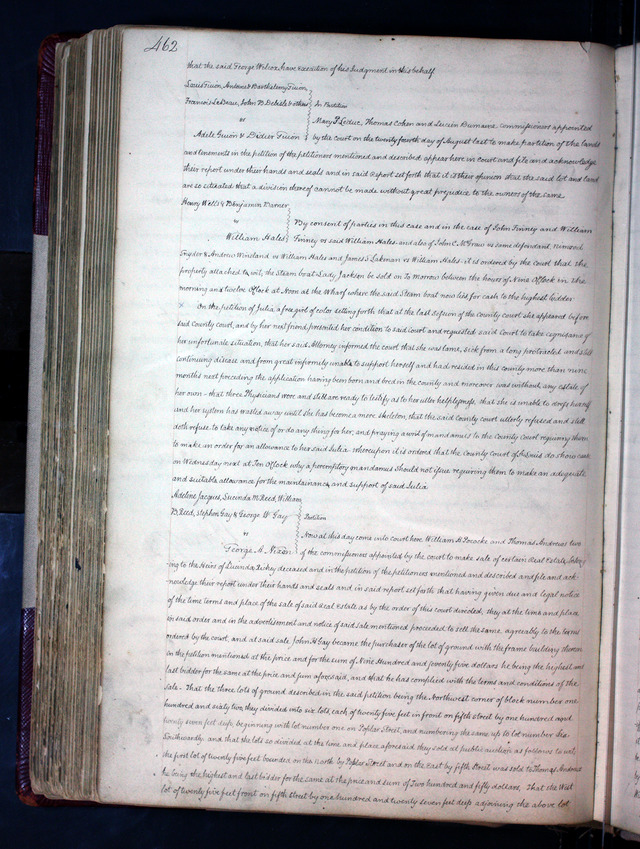 462
that the said George Wilcox have execution of his Judgment in this behalf
Louis Guion, Antoine & Barthelemy Guion
Francois LeBeaue, John B Delisle & others } In Partition
vs
Adele Guion & Didier Guion
Mary P Leduc, Thomas Cohen and Lucien Dumaine, commissioners appointed
by the court on the twenty fourth day of August last to make partition of the lands
and tenements in the petition of the petitioners mentioned and described appear here in court and file and acknowledge
their report under their hands and seals and in said report set forth that it is their opinion that the said lot and land
are so situated that a division thereof cannot be made without great prejudice to the owners of the same
Henry Wells & Benjamin Barner
vs
William Hales
By consent of parties in this case and in the case of John Finney and William
Finney vs said William Hales and also of John C McGraw vs same defendant
Snyder & Andrew Wineland vs William Hales and James S Lakman vs William Hales. it is ordered by the Court that the
property attached to wit, the Steam boat Lady Jackson be sold on To morrow between the hours of Nine O'clock in the
morning and twelve O'clock at Noon at the Wharf where the said Steam boat now lies for cash to the highest bidder
x On the petition of Julia, a free girl of color setting forth that at the last session of the county court she appeared before
said County Court, and by her next friend, presented her condition to said court and requested said Court to take cognizance of
her unfortunate situation, that her said Attorney informed the court that she was lame, sick from a long protracted and still
continuing disease and from great infirmity unable to support herself and had resided in this county more than nine
months next preceding the application having been born and bred in the county and moreover was without any estate of
her own - that three Physicians were and still are ready to testify as to her utter helplessness, that she is unable to herself
and her system has wasted away until she has become a mere skeleton, that the said county court utterly refused and still
doth refuse to take any notice of or do any thing for her, and praying a writ of mandamus to the County Court requiring them
to make an order for an allowance to her said Julia. thereupon it is ordered that the County Court of St Louis do show cause
on Wednesday next at Ten O'clock why a peremptory mandamus should not issue requiring them to make an adequate
and suitable allowance for the maintainance and support of said Julia
Adeline Jacques, Lucinda M Reed, William
B. Reed, Stephen Gay & George W Gay } Partition
vs
George H. Nixon
Now at this day come into court here William H Pococke and Thomas Andreas two
of the commissioners appointed by the court to make sale of certain Real Estate, belong
ing to the Heirs of Lucinda deceased and in the petition of the petitioners mentioned and described and file and ack
nowledge their report under their hands and seals and in said report set forth that having given due and legal notice
of the time terms and place of the sale of said Real Estate as by the order of this court directed, they at the time and place
in said order and in the advertisement and notice of said sale mentioned proceeded to sell the same agreeably to the terms
ordered by the court, and at said sale John H Gay became the purchaser of the lot of ground with the frame building thereon
in the petition mentioned at the price and for the sum of Nine Hundred and seventy five dollars he being the highest and
last bidder for the same at the price and sum aforesaid, and that he has complied with the terms and conditions of the
sale. That the three lots of ground described in the said petition being the Northwest corner of block number one
hundred and sixty two, they divided into six lots, each of twenty five feet in front on fifth street by one hundred and
twenty seven feet deep, beginning with lot number one on Poplar Street, and numbering the same up to lot number six
Southwardly. and that the lots so divided at the time and place aforesaid they sold at public auction as follows to wit,
the first lot of twenty five feet bounded on the North by Poplar Street and on the East by fifth Street was sold to Thomas Andreas
he being the highest and last bidder for the same at the price and sum of Two hundred and fifty dollars, That the West
lot of twenty five feet front on fifth street by one hundred and twenty seven feet deep adjoining the above lot